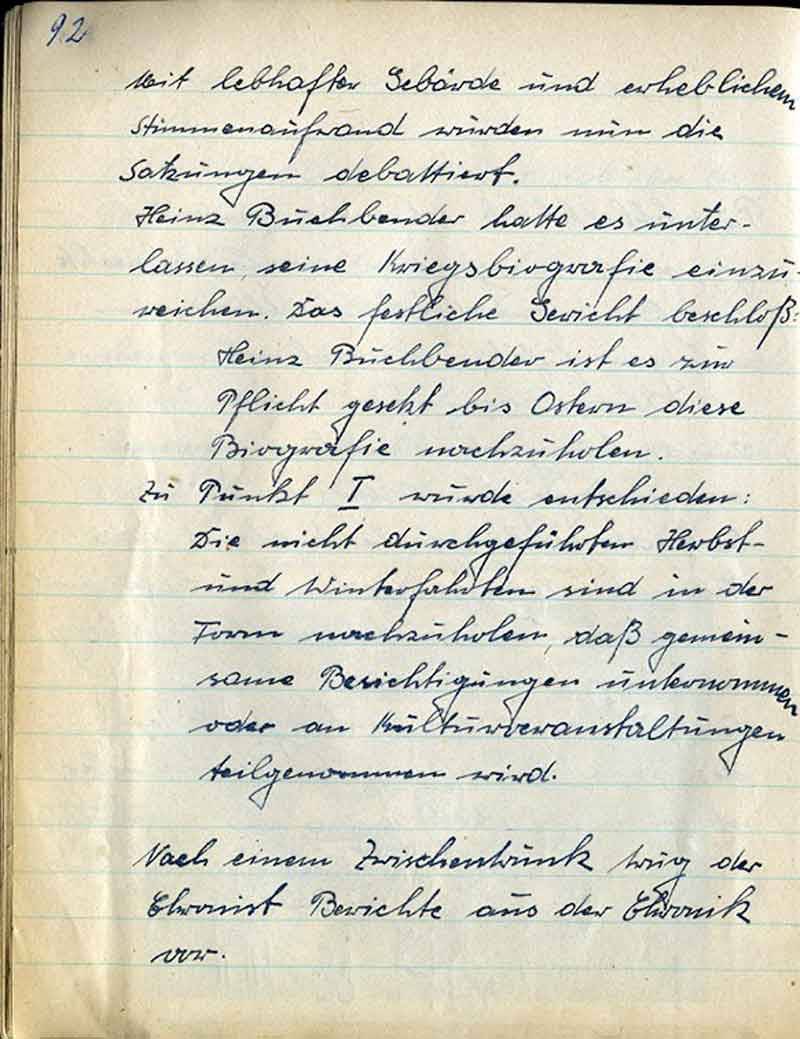 92
Mit lebhafter Gebärde und erheblichem
Stimmenaufwand wurden nun die
Satzungen debattiert.
Heinz Buchbender hatte es unter-
lassen, seine Kriegsbiografie einzu-
reichen. Das festliche Gericht beschloß:
Heinz Buchbender ist es zur
Pflicht gesetzt bis Ostern diese
Biografie nachzuholen.
Zu Punkt I wurde entschieden:
Die nicht durchgeführten Herbst-
und Winterfahrten sind in der
Form nachzuholen, daß gemein-
same Besichtigungen unternommen
oder an Kulturveranstaltungen
teilgenommen wird.
Nach einem Zwischentrunk trug der
Chronist Berichte aus der Chronik
vor.